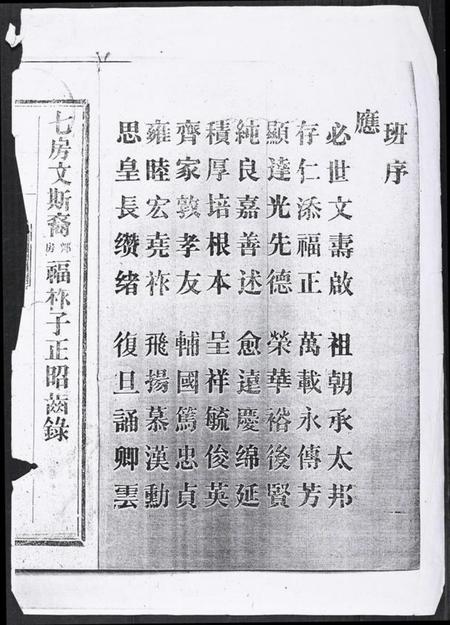 班序
應
必世文壽啟 祖朝承太邦
存仁添福正 萬載永傳芳
顯達光先德 榮華裕後賢
純良嘉善述 愈遠慶绵延
積厚培根本 呈祥毓俊英
齊家敦孝友 輔國篤忠貞
雍睦宏堯祚 飛揚慕漢勳
思皇長缵绪 復旦誦卿雲
七房文斯裔 房 福祚子正昭齒錄